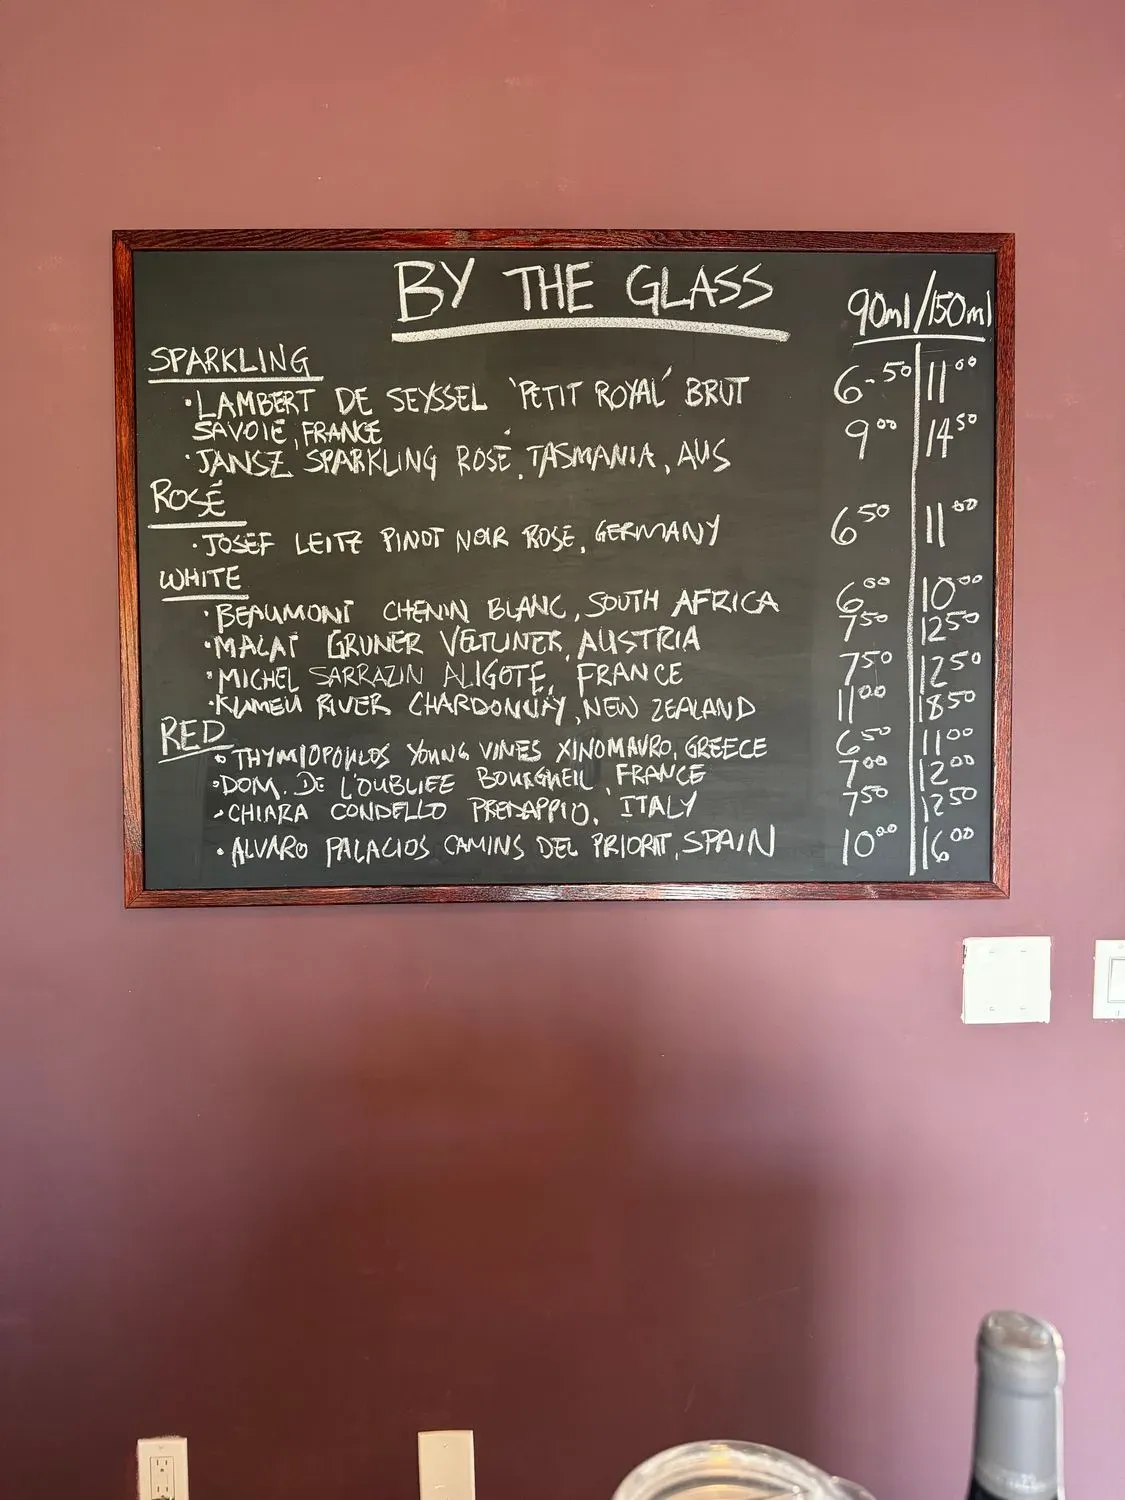 BY THE GLASS
90ml/150ml
SPARKLING
·LAMBERT DE SEYSSEL 'PETIT ROYAL' BRUT 6-50 11 00
SAVOIE, FRANCE
·JANSZ SPARKLING ROSÉ, TASMANIA, AUS 9 00 14 50
ROSÉ
·JOSEF LEITZ PINOT NOIR ROSE, GERMANY 6 50 11 00
WHITE
·BEAUMONT CHENIN BLANC, SOUTH AFRICA 6 00 10 00
·MALAT GRUNER VELTLINER, AUSTRIA 7 50 12 50
·MICHEL SARRAZIN ALIGOTE, FRANCE 7 50 12 50
·KUMEU RIVER CHARDONNAY, NEW ZEALAND 11 00 18 50
RED
·THYMIOPOULOS YOUNG VINES XINOMAVRO, GREECE 6 50 11 00
·DOM. DE L'OUBLIEE BOURGUEIL, FRANCE 7 00 12 00
·CHIARA CONDELLO PREDAPPIO, ITALY 7 50 12 50
·ALVARO PALACIOS CAMINS DEL PRIORAT, SPAIN 10 00 16 00